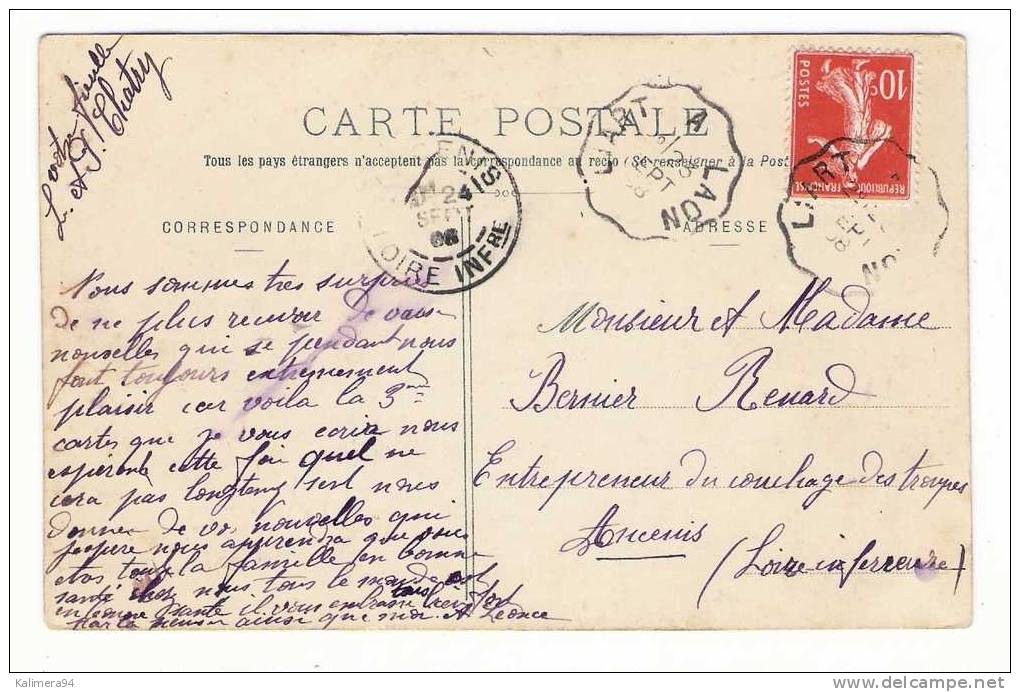 votre fieulle
L. et J. Chatry
CARTE POSTALE
Tous les pays étrangers n'acceptent pas la correspondance au recto (Se renseigner à la Post
CORRESPONDANCE
ADRESSE
10c
POSTES
REPUBLIQUE FRANÇAISE
LIART A LAON
SEPT
08
LIART
ENIS
24
SEPT
08
LOIRE INFRE
Nous sommes tres surpris
de ne plus recevoir de vause
nouvelles qui se pendant nous
font toujours extremement
plaisir car voila la 3me
cartes que je vous ecrir nous
esperons cette foi quel ne
cera pas longtemp sest nous
donner de vos nouvelles qui
jespere nous apprendra que vous
etes toute la famille en bonne
santé chez nous tous le monde est
en bonne sante il vous embrasse bien fort
ainsi que moi A Léonce
Monsieur et Madame
Bernier Renard
Entrepreneur du couchage des troupes
Ancenis
(Loire inferieure)
Kalimera94
delcampe.net